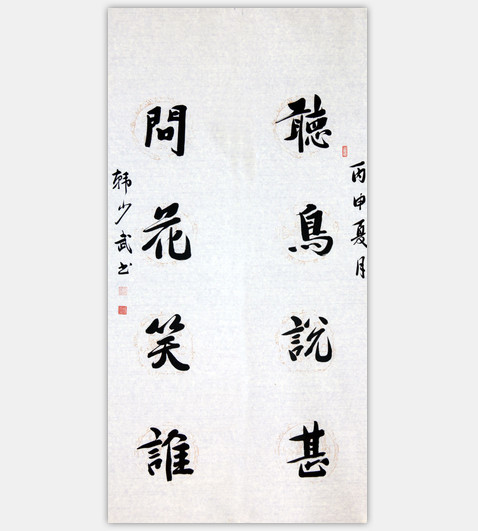 丙申夏月
聽鳥說甚
問花笑誰
韩少武书